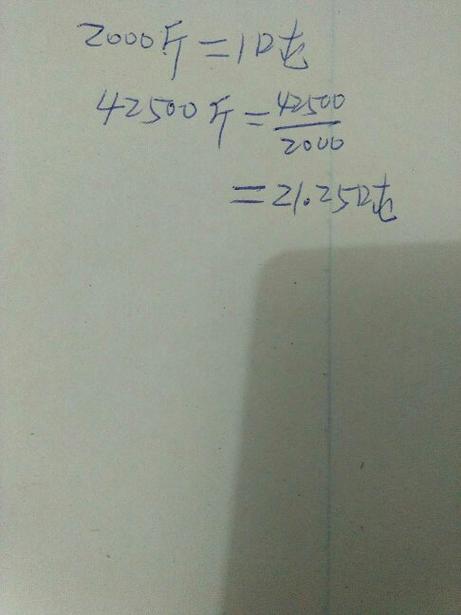 2000斤=1吨
42500斤=42500/2000
=21.25吨